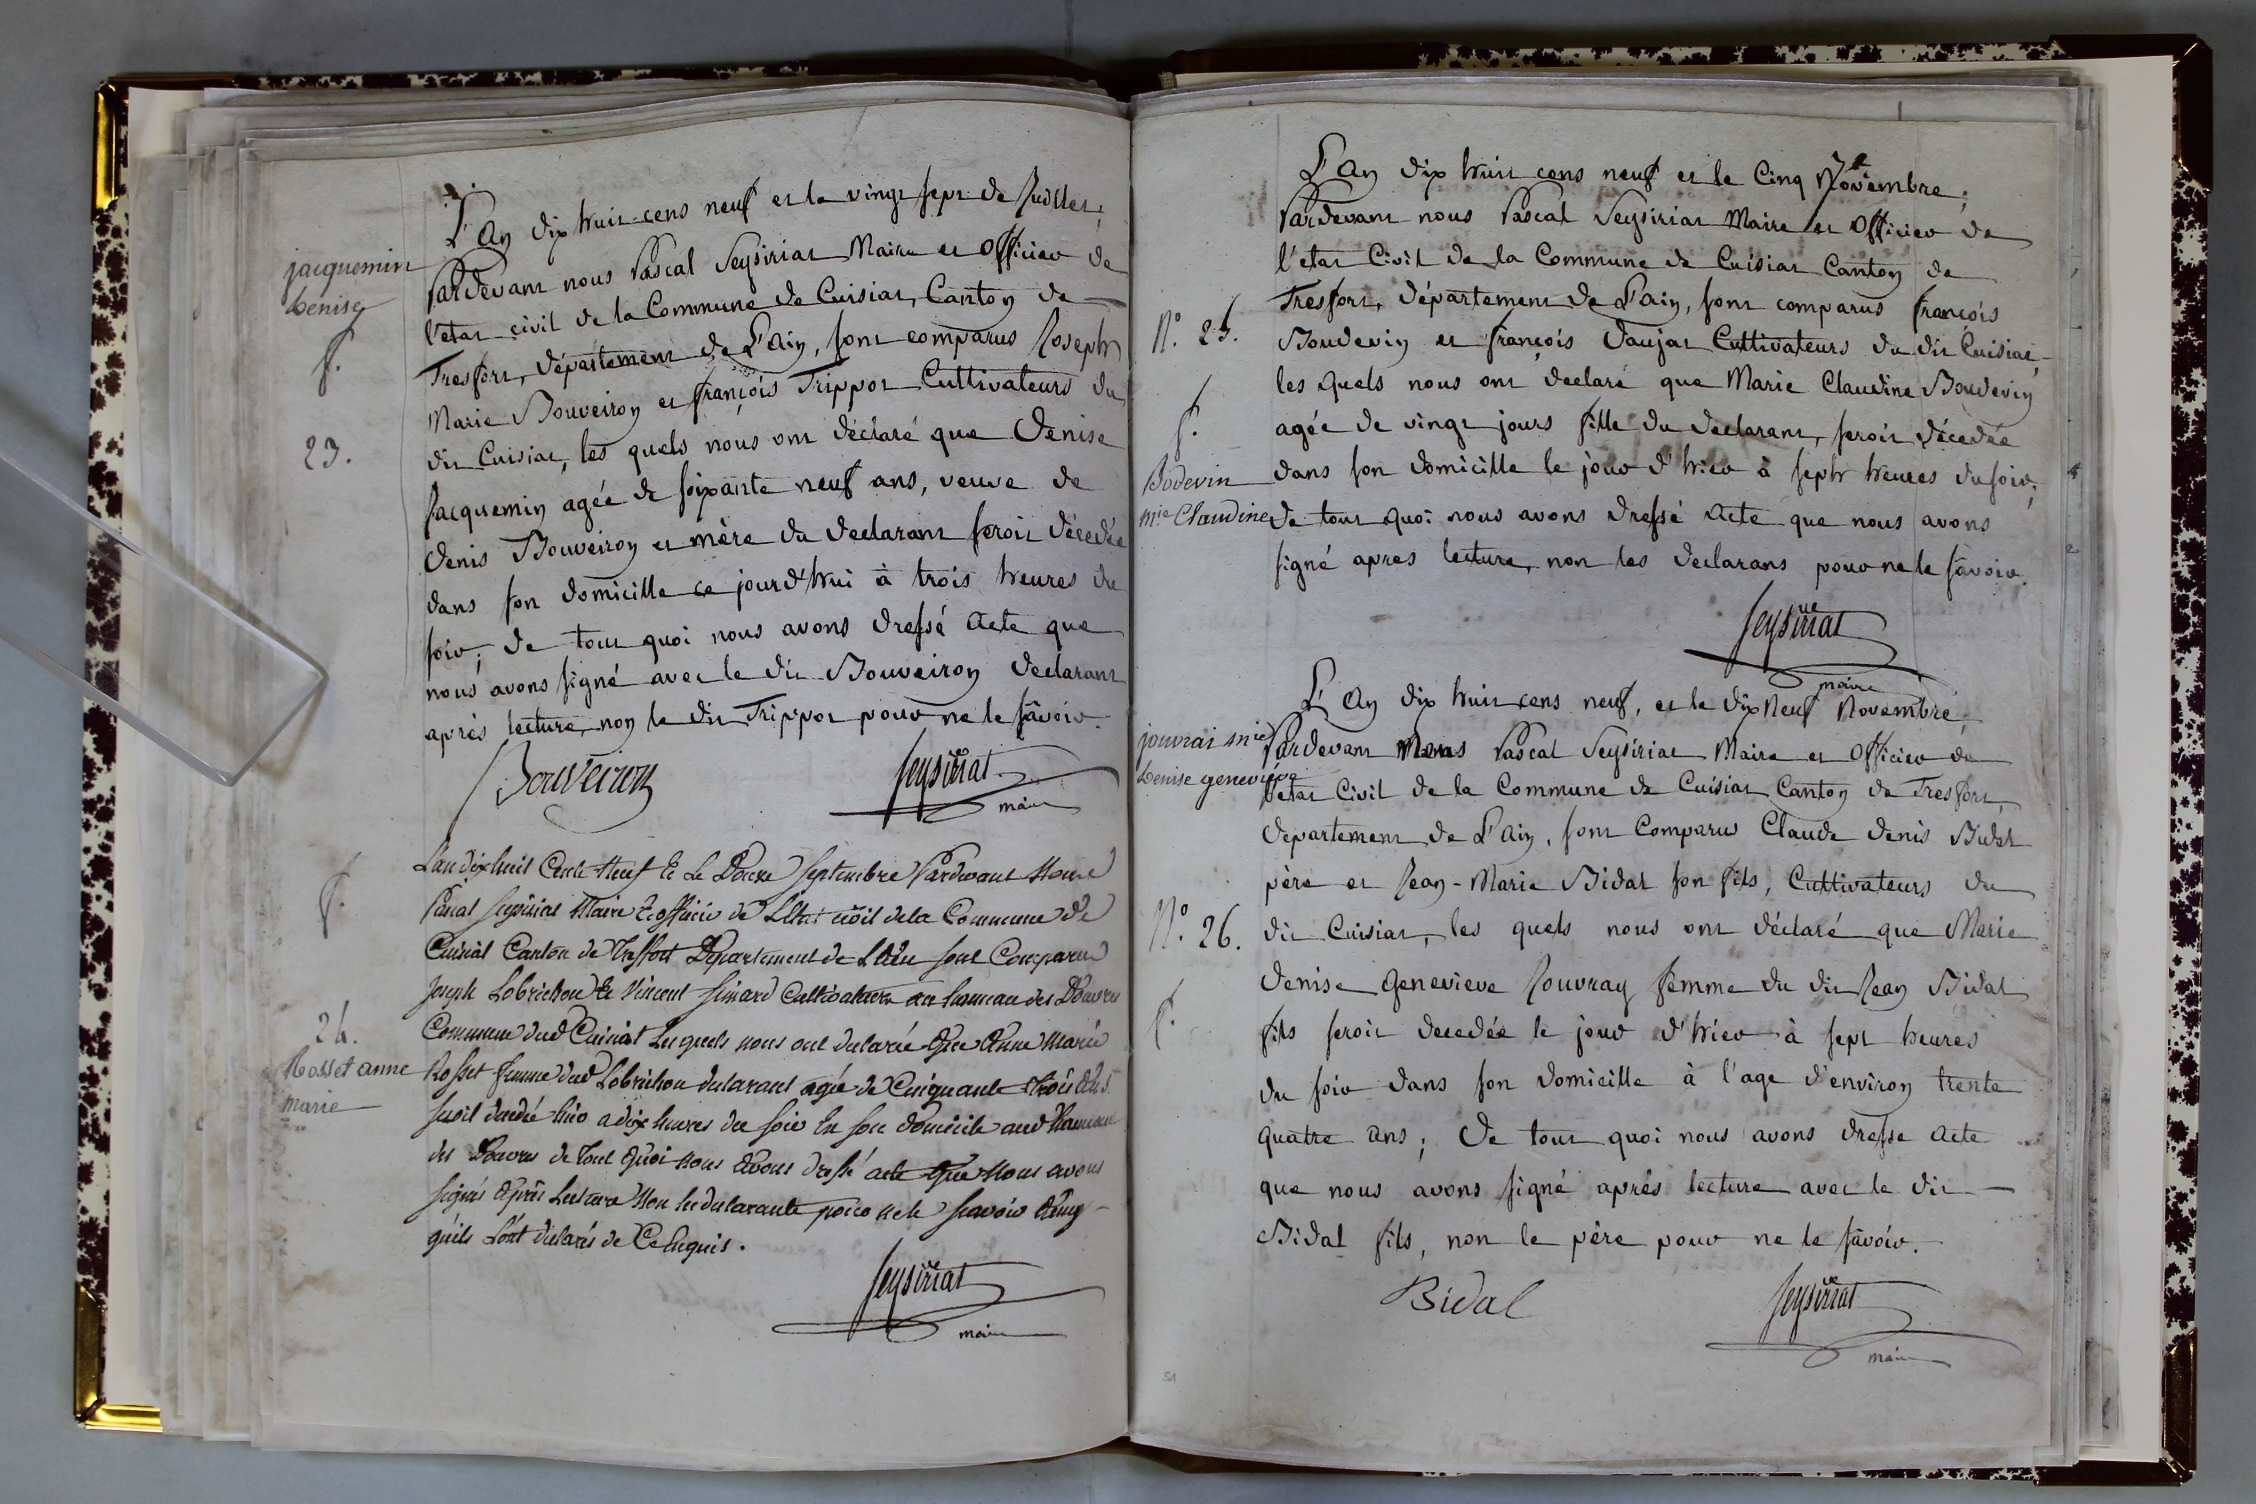 jacquemin
Denise
f.
23.
L'An dix huit cens neuf et le vingt sept de Juillet,
Pardevant nous Pascal Seysiriat Maire et Officier de
l'etat civil de la Commune de Cuisiat, Canton de
Tresfort, département de L'ain, sont comparus Joseph
Marie Bouveiron et françois Trippot Cultivateurs du
dit Cuisiat, les quels nous ont déclaré que Denise
Jacquemin agée de soixante neuf ans, veuve de
Denis Bouveiron et mère du declarant seroit décedée
dans son domicille ce jourd'hui à trois heures du
soir; de tout quoi nous avons dressé acte que
nous avons signé avec le dit Bouveiron declarant
après lecture, non le dit Trippot pour ne le sávoir.
Bouveiron
Seysiriat
maire
f.
24.
Rosset anne
marie
L'an dix huit Cents Neuf Et Le Douze Septembre Pardevant Nous
Pascal Seysiriat Maire Et officier de L'Etat civil de la Commune de
Cuisiat Canton de Treffort Département de L'Ain sont Comparus
Joseph Lobrichon Et Vincent Simard Cultivateurs au hameau des
Commune dud Cuisiat Lesquels nous ont déclaré Que Anne Marie
Rosset femme dud Lobrichon declarant agée de Cinquante trois Ans
seroit décedé hier a dix heures du soir En son domicile aud hameau
des de Tout Quoi Nous Avons dressé acte Que Nous avons
signés Après Lecture Non les declarants pour ne le scavoir
qu'ils L'ont déclarés de Ce Enquis.
Seysiriat
maire
N.º 25.
f.
Bodevin
m.ie Claudine
L'An dix huit cens neuf et le Cinq Novembre;
Pardevant nous Pascal Seysiriat Maire et Officier de
l'etat Civil de la Commune de Cuisiat Canton de
Tresfort, département de L'ain, sont comparus françois
Boudevin et françois Daujat Cultivateurs du dit Cuisiat,
les quels nous ont declaré que Marie Claudine Boudevin
agée de vingt jours fille du declarant, seroit décedée
dans son domicille le jour d'hier à septh heures du soir;
de tout quoi nous avons dressé acte que nous avons
signé apres lecture, non les declarans pour ne le sávoir.
Seysiriat
maire
jouvrai m.ie
Denise genevieve
N.º 26.
f.
L'An dix huit cens neuf, et le dix Neuf Novembre,
Pardevant Nous Pascal Seysiriat Maire et Officier de
l'etat Civil de la Commune de Cuisiat Canton de Tresfort,
departement de L'ain, sont Comparus Claude denis Bidat
père et Jean-Marie Bidat son fils, Cultivateurs du
dit Cuisiat, les quels nous ont déclaré que Marie
Denise Genevieve Jouvray femme du dit Jean Bidat
fils seroit decedée le jour d'hier à sept heures
du soir dans son domicille à l'age d'environ trente
quatre ans; De tout quoi nous avons dresse acte
que nous avons signé aprés lecture avec le dit
Bidat fils, non le père pour ne le sávoir.
Bidal
Seysiriat
maire
51